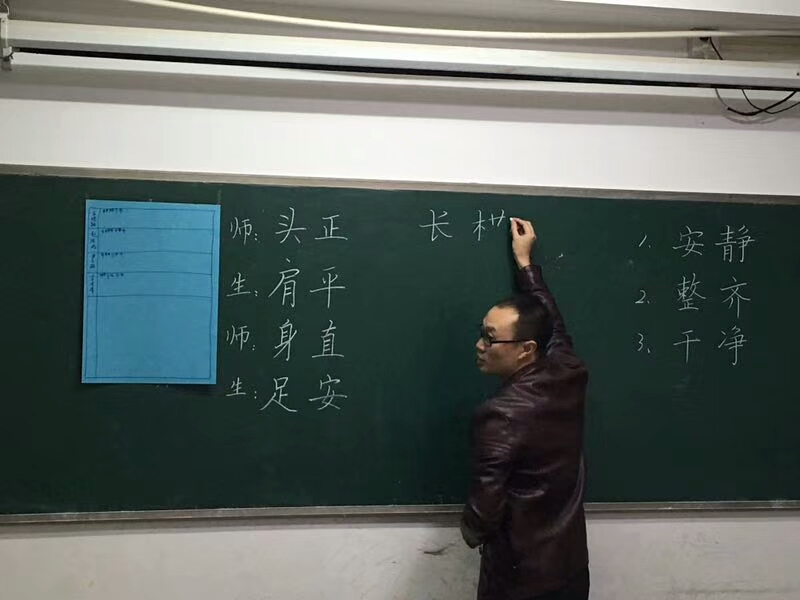 师：头正
生：肩平
师：身直
生：足安
长
1、安静
2、整齐
3、干净